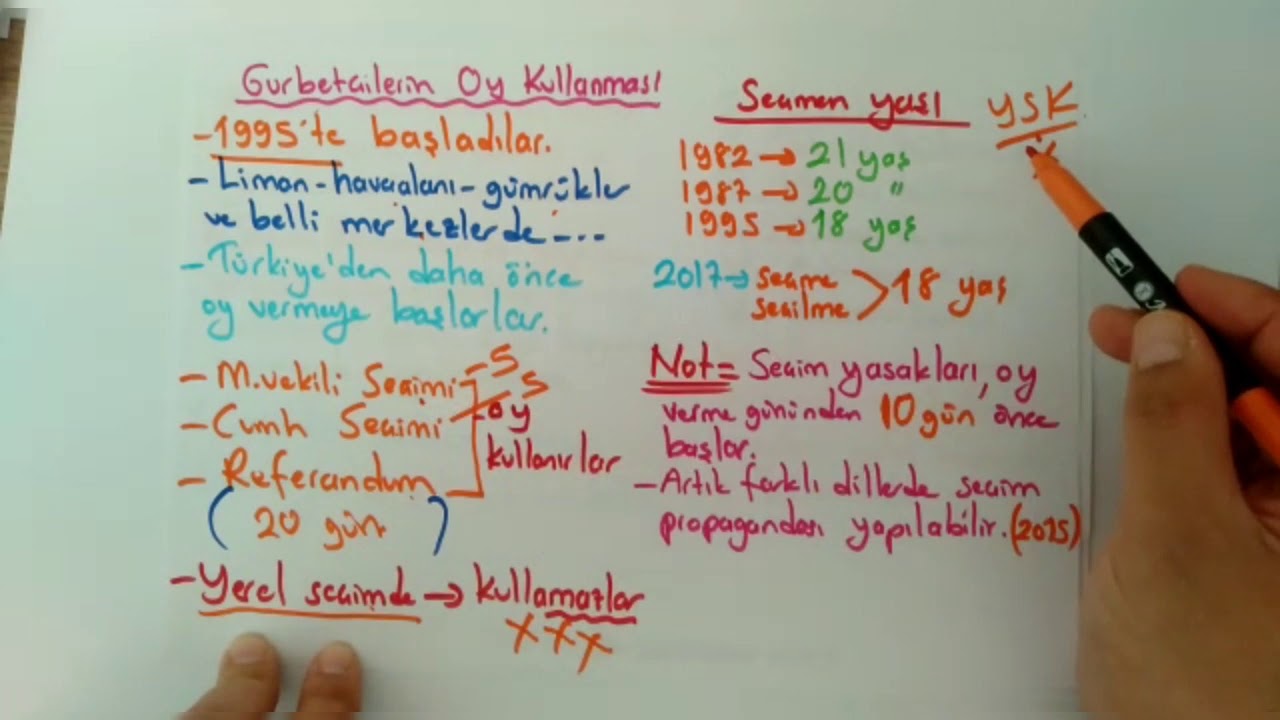 Gurbetçilerin Oy Kullanması
- 1995'te başladılar.
- Liman - havaalanı - gümrükler
ve belli merkezlerde - - ...
- Türkiye'den daha önce
oy vermeye başlarlar.
- M.vekili Seçimi - 5
- Cumh Seçimi 5
oy
kullanırlar
- Referandum
( 20 gün )
- Yerel seçimde → kullamazlar
X X X
Seçmen yaşı
YSK
1982 → 21 yaş
1987 → 20 "
1995 → 18 yaş
2017 → seçme
seçilme > 18 yaş
Not = Seçim yasakları, oy
verme gününden 10 gün önce
başlar.
- Artık farklı dillerde seçim
propagandası yapılabilir. (2015)